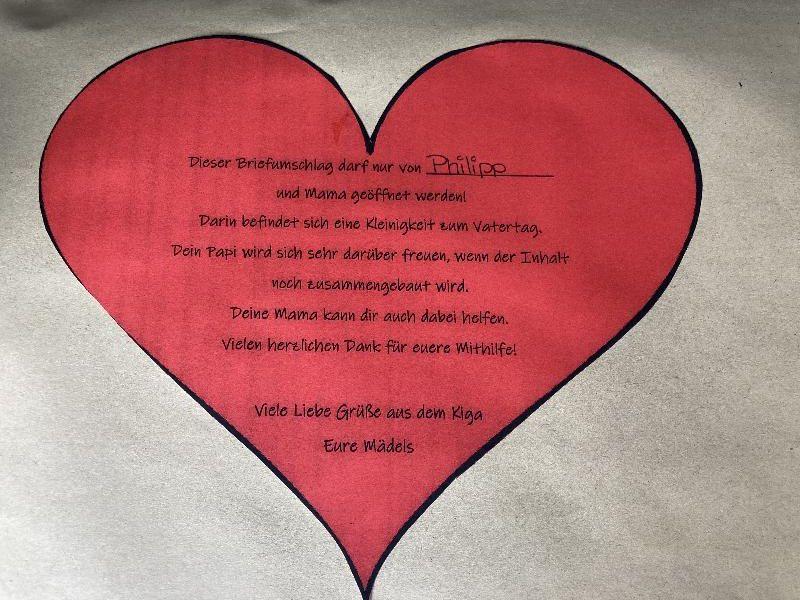 Dieser Briefumschlag darf nur von Philipp
und Mama geöffnet werden!
Darin befindet sich eine Kleinigkeit zum Vatertag.
Dein Papi wird sich sehr darüber freuen, wenn der Inhalt
noch zusammengebaut wird.
Deine Mama kann dir auch dabei helfen.
Vielen herzlichen Dank für euere Mithilfe!
Viele Liebe Grüße aus dem Kiga
Eure Mädels